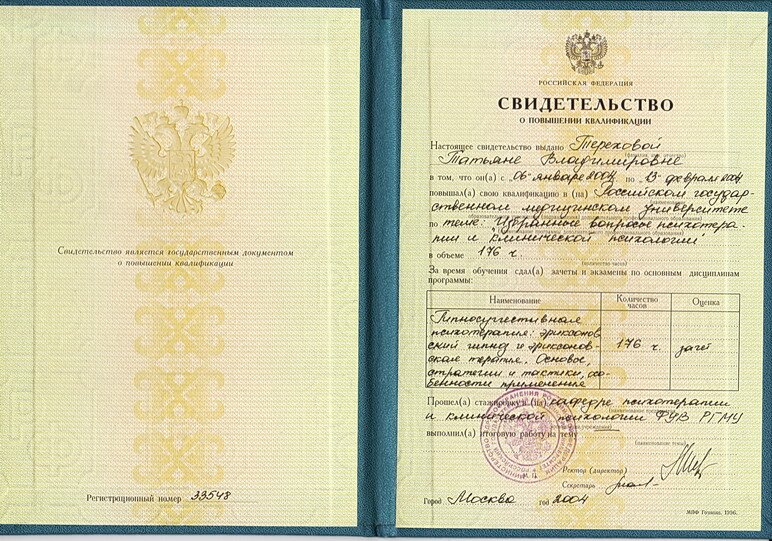 Свидетельство является государственным документом
о повышении квалификации
Регистрационный номер 33548
РОССИЙСКАЯ ФЕДЕРАЦИЯ
СВИДЕТЕЛЬСТВО
О ПОВЫШЕНИИ КВАЛИФИКАЦИИ
Настоящее свидетельство выдано Тереховой
Татьяне Владимировне
в том, что он(а) с „06“ января 2004 по „13“ февраля 2004
повышал(а) свою квалификацию в (на) Российском государ-
ственном медицинском университете
по теме: "Избранные вопросы психотера-
пии и клинической психологии"
в объеме 176 ч.
(количество часов)
За время обучения сдал(а) зачеты и экзамены по основным дисциплинам
программы:
Наименование Количество часов Оценка
Гипносуггестивная
психотерапия: эриксонов
ский гипноз и эриксонов- 176 ч. зачет
ская терапия. Основы,
стратегии и тактики, осо-
бенности применения
Прошел(а) стажировку в (на) кафедре психотерапии
и клинической психологии ФУВ РГМУ
выполнил(а) итоговую работу на тему
(наименование темы)
Ректор (директор)
Секретарь
Город Москва год 2004
МПФ Гознака. 1996.